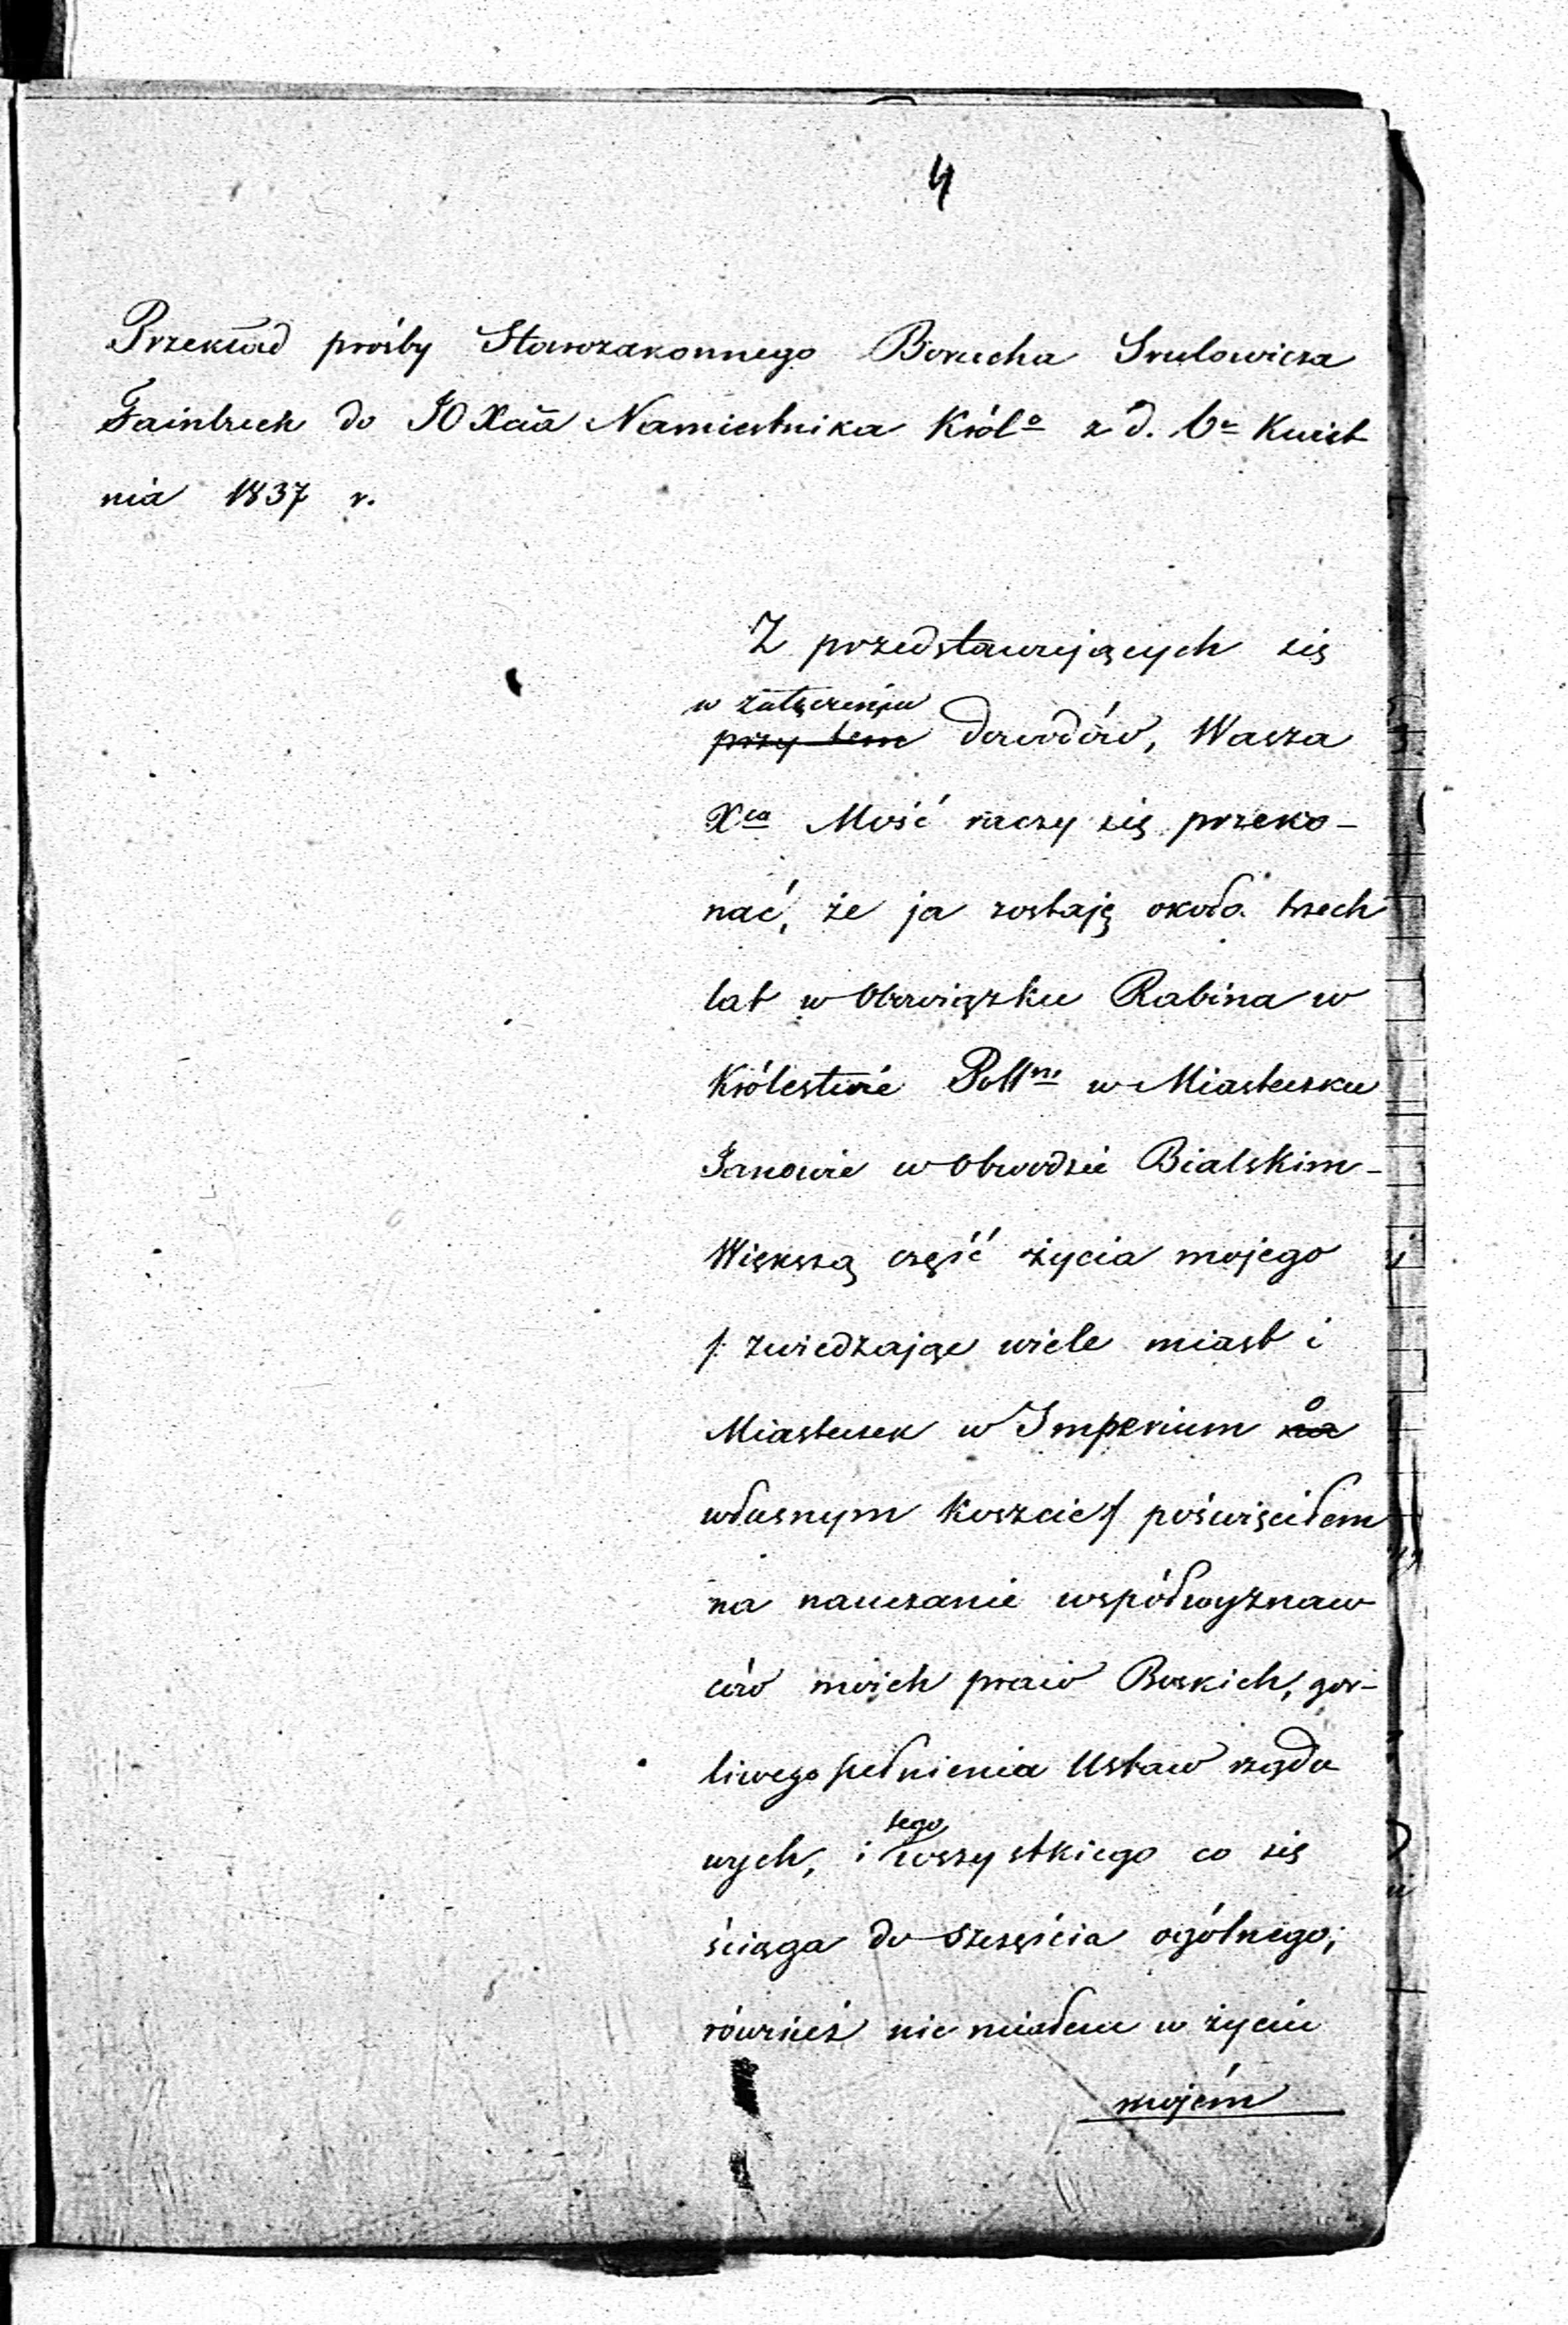 4
Przekład prośby Starozakonnego Borucha Srulowicza
do JO Xcia Namiestnika Król° z d. Kwiet
nia 1837 r.
Z przedstawujących się
w załączeniu
przy tem dowodów, Wasza
Xca Mość raczy się przeko-
nać, że ja zostaję około trzech
lat w Obowiązku Rabina w
Królestwie w Miasteczku
Janowie w Obwodzie Bialskim-
Większą część życia mojego
/: zwiedzając wiele miast i
Miasteczek w Imperium na o
własnym koszcie/ poświęciłem
na nauczanie współwyznaw
ców moich praw Boskich, gor-
liwego pełnienia Ustaw rządo
tego
wych, i wszystkiego co się
ściąga do szczęścia ogólnego;
również nie miałem w życiu
mojém